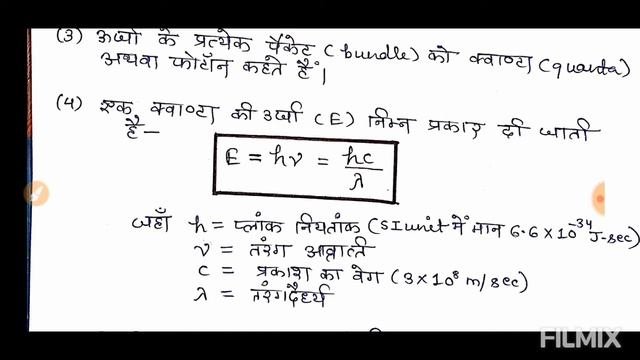 (3) ऊर्जा के प्रत्येक पैकेट (bundle) को क्वाण्टा (quanta)
अथवा फोटॉन कहते हैं।
(4) एक क्वाण्टा की ऊर्जा (E) निम्न प्रकार दी जाती
है-
E = hν = hc/λ
जहाँ h = प्लांक नियतांक (SI unit में मान 6.6 × 10⁻³⁴ J-sec)
ν = तरंग आवृत्ति
c = प्रकाश का वेग (3 × 10⁸ m/sec)
λ = तरंगदैर्ध्य
FILMIX